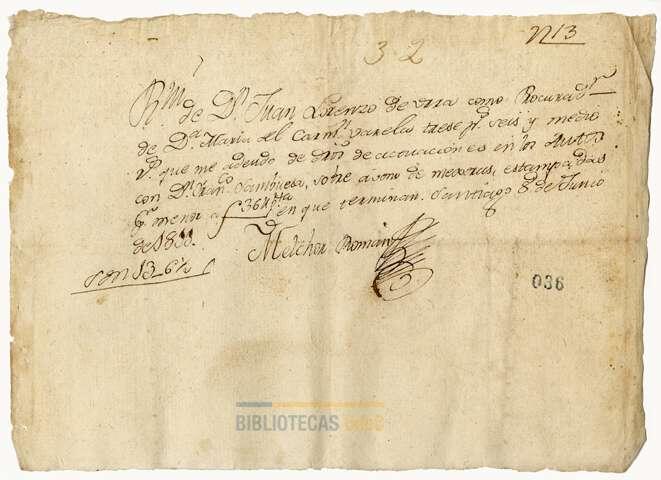 Nº 13
32
Rví de Dⁿ Juan Lorenzo de Urra como Procuradʳ
de Dª Maria del Carmⁿ Varela trese pˢ seis y medio
rˢ que me adeudo de dros de actuaciones en los Autos
con Dⁿ Franᶜᵒ Sambuesa, sobre abono de mejoras, estampadas
menor a f 36 en que terminan. Santiago 8 de Junio
de 18
Melchor Roman
son 13_6½
036
BIBLIOTECAS